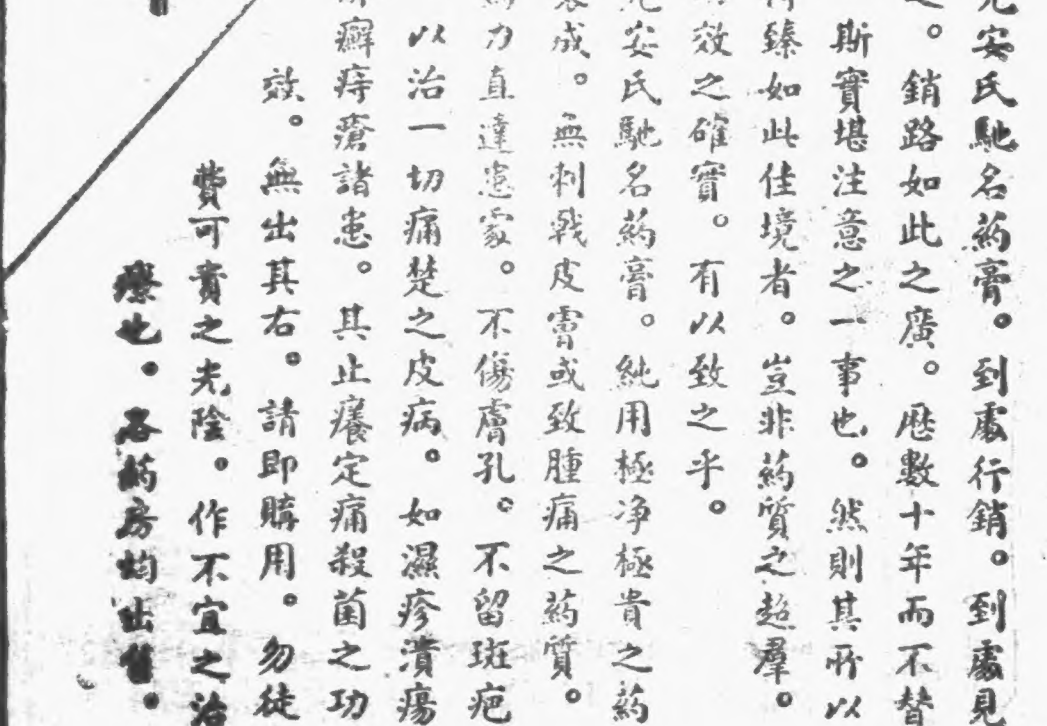 安氏馳名葯膏。到處行銷。到處見
。銷路如此之廣。歷數十年而不替
斯實堪注意之一事也。然則其所以
臻如此佳境者。豈非葯質之超羣。
效之確實。有以致之乎。
安氏馳名葯膏。純用極净極貴之葯
成。無刺戟皮膚或致腫痛之葯質。
力直達患處。不傷膚孔。不留斑疤
以治一切痛楚之皮病。如濕疹潰瘍
癬痔瘡諸患。其止癢定痛殺菌之功
效。無出其右。請即購用。勿徒
費可貴之光陰。作不宜之治
療也。各葯房均出售。